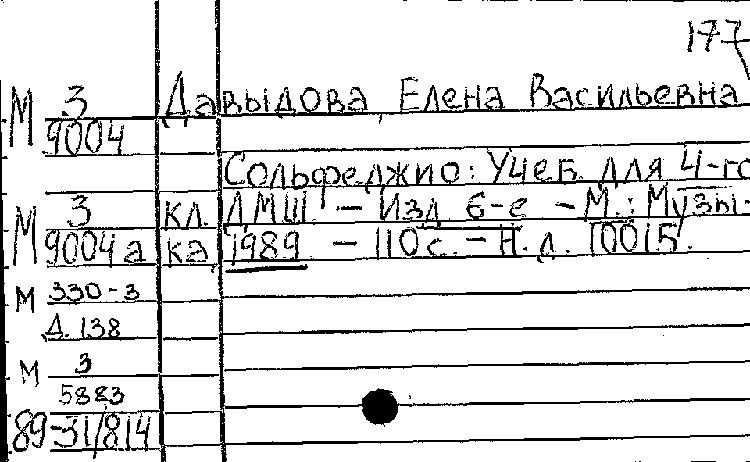 177
М 3 Давыдова, Елена Васильевна
9004
Сольфеджио: Учеб. для 4-го
М 3 кл. ДМШ. — Изд. 6-е — М.: Музы-
9004а ка, 1989. — 110 с. — Н. д. 10015.
М 330-3
Д. 138
М 3
5883
89-31/814